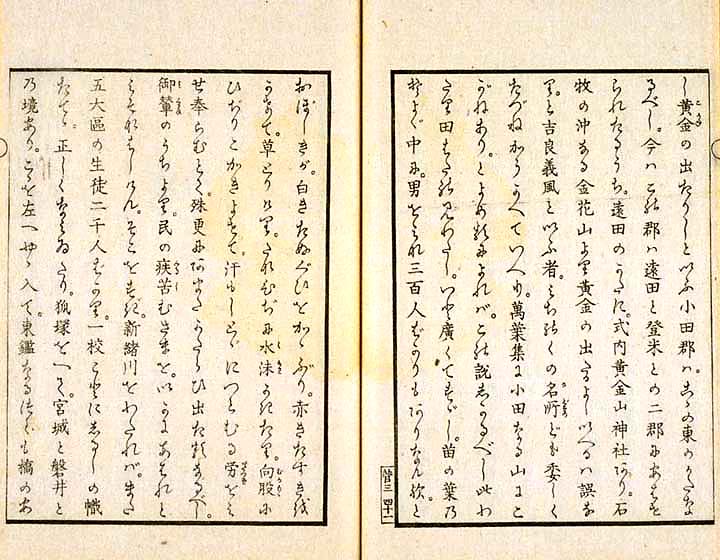 し黄金の出たりしといふ小田郡ハこゝの東のかたな
るべし。今ハこの郡ハ遠田と登米との二郡にあはせ
られたるうち。遠田のかたに。式内黄金山神社あり。石
牧の沖なる金花山より黄金の出たるよしいへるハ誤な
りと吉良義風といふ者。みちのくの名所ども委しく
たづねかうがへていへり。萬葉集に小田なる山にこ
がねあり。とよめるによれバ。この説しかるべし此わ
たり田はたの見わたし。いと廣くてすゞし。苗の葉の
そよぐ中に。男をとめ三百人ばかりもありなん歟と
菅三 四十一
おぼしきが。白きたぬぐひをかゝぶり。赤きたすきを
かけて。草とりけり。たなひぢに水沫かきたり。向股に
ひぢりこかきよせて。汗もしとゞにつとむる労をみ
せ奉らむとて。殊更にあまたかたらひ出たるなるべし。
御輦のうちより。民の疾苦むさまを。いかにあはれと
みそなはしけん。そこをすぎ。新緒川をわたれバ。また
五大區の生徒二千人ばかり。一校ごとにしるしの幟
たてゝ。正しくならゐたり。狐塚をへて。宮城と磐井と
の境あり。こゝを左へやゝ入て。東鑑なる 橋のあ